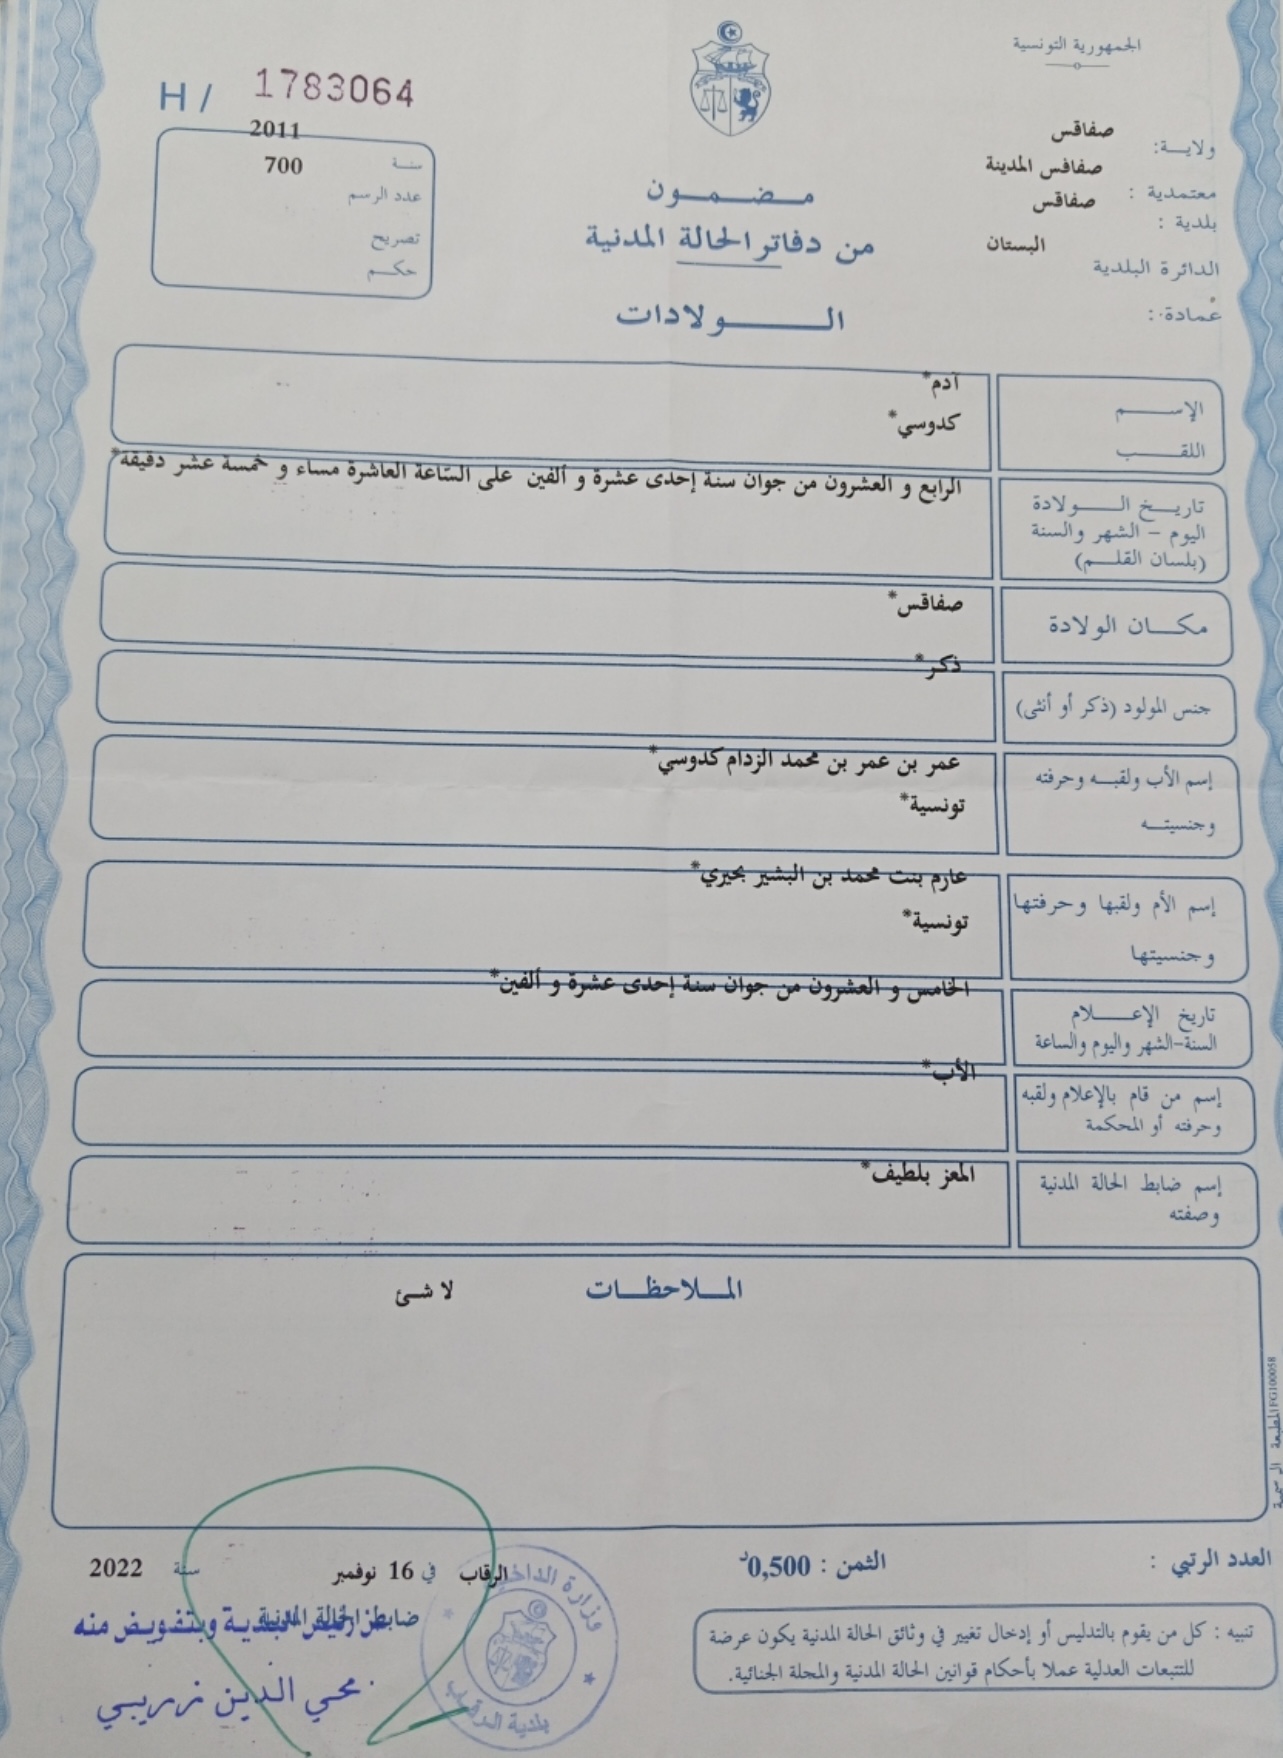 الجمهورية التونسية
H / 1783064
ولايــة: صفاقس
معتمدية : صفاقس المدينة
بلدية : صفاقس
الدائرة البلدية البستان
عمادة:
سنــة 2011
عدد الرسم 700
تصريح
حكــم
مـــضـــمـــون
من دفاتر الحالة المدنية
الـــــولادات
الإســـــم آدم*
اللقـــب كدوسي*
تاريــخ الـــــولادة
اليوم – الشهر والسنة
(بلسان القلــم)
الرابع و العشرون من جوان سنة إحدى عشرة و ألفين على الساعة العاشرة مساء و خمسة عشر دقيقة*
مكــــان الولادة صفاقس*
جنس المولود (ذكر أو أنثى) ذكر*
إسم الأب ولقبــه وحرفته عمر بن عمر بن محمد الزدام كدوسي*
وجنسيتــه تونسية*
إسم الأم ولقبها وحرفتها عارم بنت محمد بن البشير بحيري*
وجنسيتها تونسية*
تاريخ الإعـــــلام
السنة-الشهر واليوم والساعة
الخامس و العشرون من جوان سنة إحدى عشرة و ألفين*
إسم من قام بالإعلام ولقبه
وحرفته أو المحكمة
الأب*
إسم ضابط الحالة المدنية
وصفته
المعز بلطيف*
المــلاحظــات لا شئ
المطبعة الرسمية FG100058
العدد الرتبي :
الثمن : 0,500د
الرقاب في 16 نوفمبر سنة 2022
ضابط الحالة المدنية
عن رئيس البلديــة وبتفويض منه
محي الدين زريبي
وزارة الداخلية
بلدية الرقاب
تنبيه : كل من يقوم بالتدليس أو إدخال تغيير في وثائق الحالة المدنية يكون عرضة
للتتبعات العدلية عملا بأحكام قوانين الحالة المدنية والمجلة الجنائية.